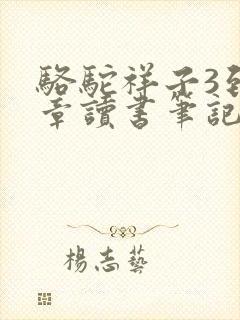 駱駝祥子3到
章讀書筆記
楊志藝